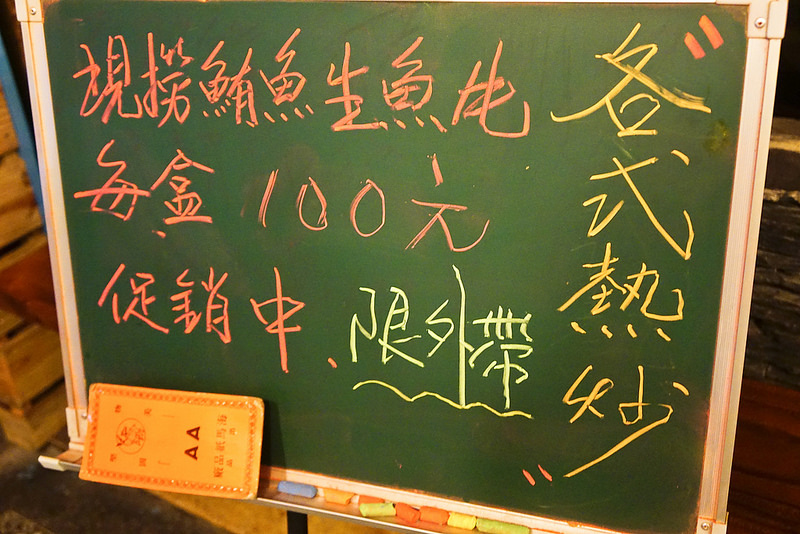 現撈鮪魚生魚片
每盒100元
促銷中、限外帶
〝各式熱炒〞
AA
海馬紙品廠